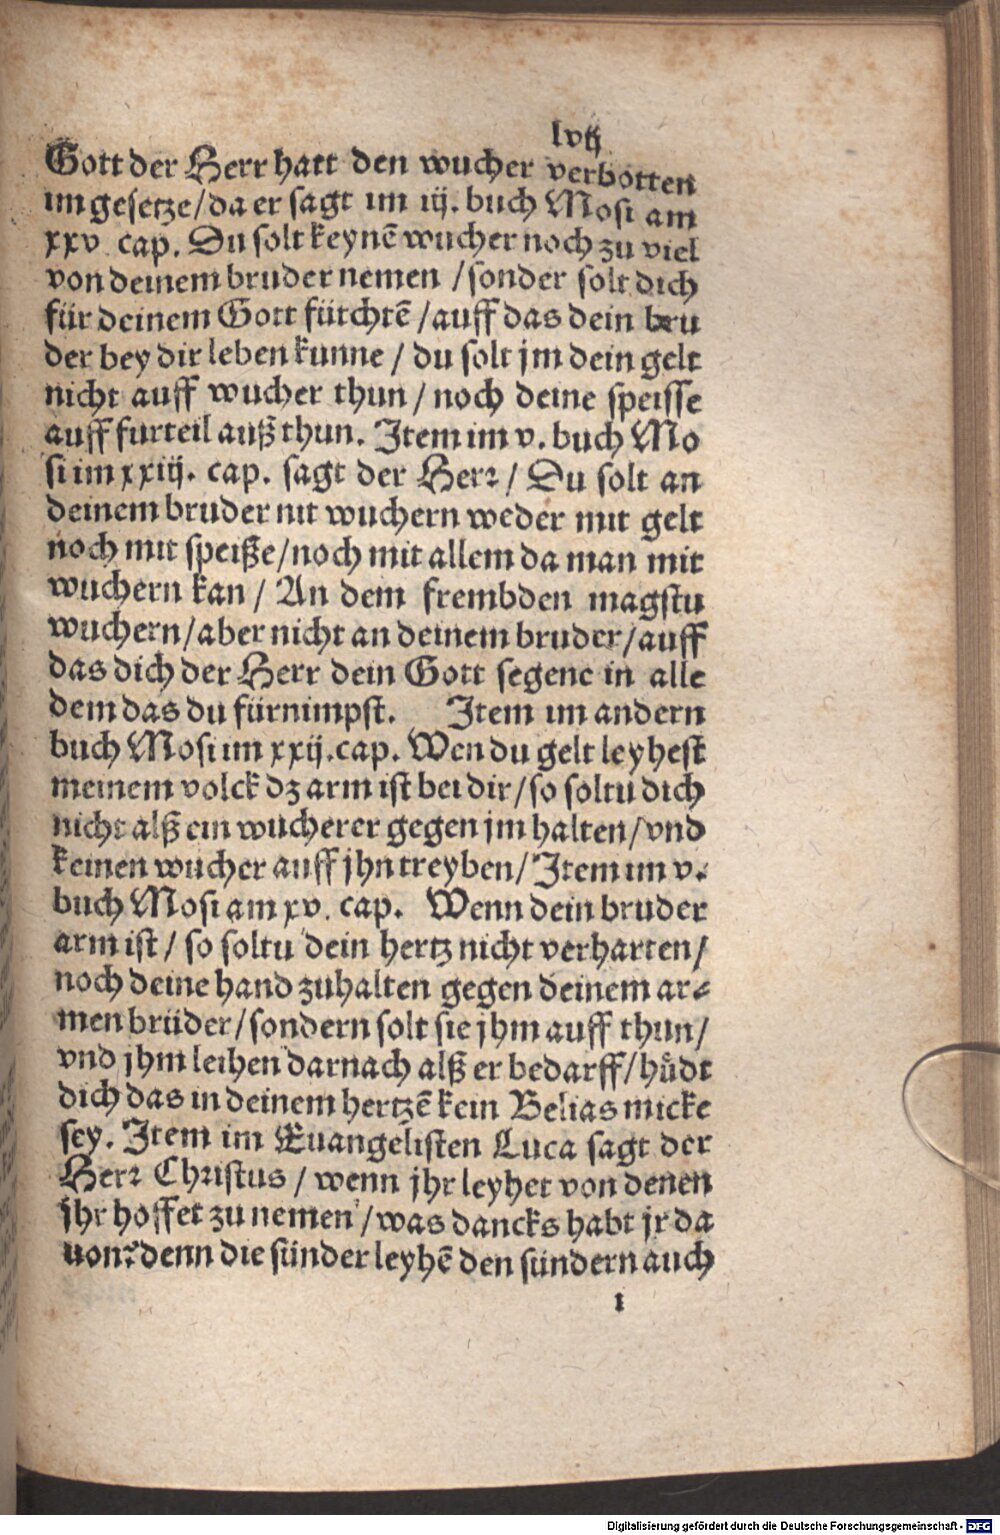 lvij
Gott der Herr hatt den wucher verbotten
im gesetze/da er sagt im iij. buch Mosi am
xxv cap. Du solt keynē wucher noch zu viel
von deinem bruder nemen /sonder solt dich
für deinem Gott fürchtē /auff das dein bru
der bey dir leben kunne / du solt jm dein gelt
nicht auff wucher thun / noch deine speisse
auff furteil auß thun. Item im v. buch Mo
si im xxiij. cap. sagt der Herr / Du solt an
deinem bruder nit wuchern weder mit gelt
noch mit speiße/noch mit allem da man mit
wuchern kan / An dem frembden magstu
wuchern/aber nicht an deinem bruder/auff
das dich der Herr dein Gott segene in alle
dem das du fürnimpst. Item im andern
buch Mosi im xxij.cap. Wen du gelt leyhest
meinem volck dz arm ist bei dir/so soltu dich
nicht alß ein wucherer gegen jm halten/vnd
keinen wucher auff jhn treyben/Item im v.
buch Mosi am xv. cap. Wenn dein bruder
arm ist/ so soltu dein hertz nicht verharten/
noch deine hand zuhalten gegen deinem ar⸗
men brüder/sondern solt sie jhm auff thun/
vnd jhm leihen darnach alß er bedarff/hůdt
dich das in deinem hertzē kein Belias micke
sey. Item im Euangelisten Luca sagt der
Herr Christus / wenn jhr leyhet von denen
jhr hoffet zu nemen /was dancks habt jr da
uon? denn die sünder leyhē den sündern auch
i
Digitalisierung gefördert durch die Deutsche Forschungsgemeinschaft - DFG